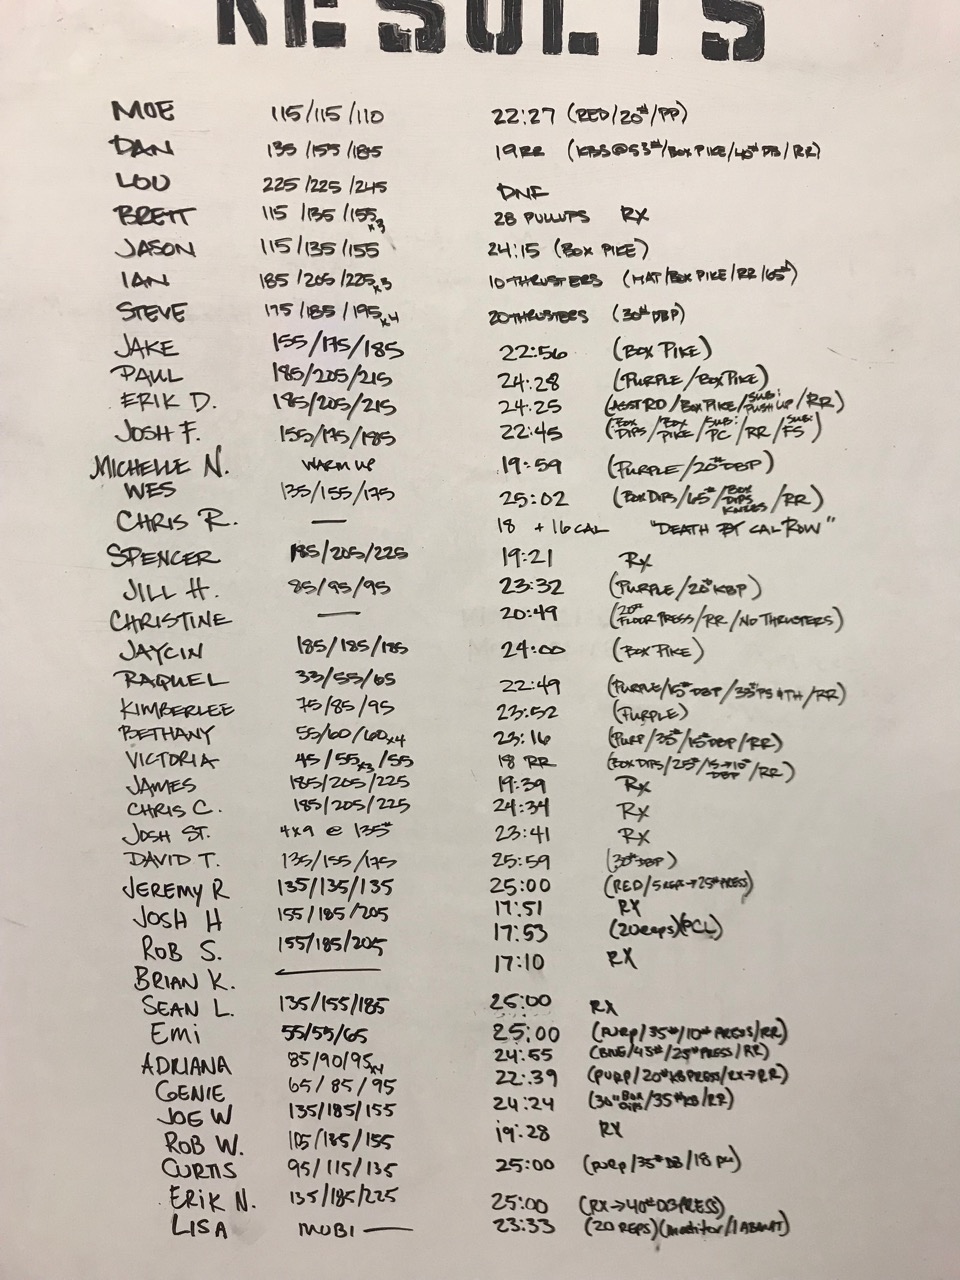 RESULTS
MOE 115/115/110 22:27 (RED/20#/PP)
DAN 135/155/185 19 RR (KBS@53#/BOX PIKE/40# DB/RR)
LOU 225/225/245 DNF
BRETT 115/135/155x3 28 PULLUPS RX
JASON 115/135/155 24:15 (BOX PIKE)
IAN 185/205/225x3 10 THRUSTERS (MAT/BOX PIKE/RR/65#)
STEVE 175/185/195x4 20 THRUSTERS (30# DBP)
JAKE 155/175/185 22:56 (BOX PIKE)
PAUL 185/205/215 24:28 (PURPLE/BOX PIKE)
ERIK D. 185/205/215 24:25 (ASSTRD/BOX PIKE/SUB: PUSH UP/RR)
JOSH F. 155/175/185 22:45 (BOX DIPS/BOX PIKE/SUB: PC/RR/SUB: FS)
MICHELLE N. WARM UP 19:59 (PURPLE/20# DBP)
WES 135/155/175 25:02 (BOX DIPS/65#/BOX DIPS KNEES/RR)
CHRIS R. — 18 + 16 CAL "DEATH BY CAL ROW"
SPENCER 185/205/225 19:21 RX
JILL H. 85/95/95 23:32 (PURPLE/20# KBP)
CHRISTINE — 20:49 (20# FLOOR PRESS/RR/NO THRUSTERS)
JAYCIN 185/185/185 24:00 (BOX PIKE)
RAQUEL 33/55/65 22:49 (PURPLE/15# DBP/33# PS & TH/RR)
KIMBERLEE 75/85/95 23:52 (PURPLE)
BETHANY 55/60/60x4 23:16 (PURP/35#/15# DBP/RR)
VICTORIA 45/55x3/55 18 RR (BOX DIPS/25#/15→10# DBP/RR)
JAMES 185/205/225 19:39 RX
CHRIS C. 185/205/225 24:34 RX
JOSH ST. 4x9 @ 135# 23:41 RX
DAVID T. 135/155/175 25:59 (30# DBP)
JEREMY R 135/135/135 25:00 (RED/5 REPS→25# PRESS)
JOSH H 155/185/205 17:51 RX
ROB S. 155/185/205 17:53 (20 reps)(PCL)
BRIAN K. — 17:10 RX
SEAN L. 135/155/185 25:00 RX
EMI 55/55/65 25:00 (PURP/35#/10# PRESS/RR)
ADRIANA 85/90/95x4 24:55 (/45#/25# PRESS/RR)
GENIE 65/85/95 22:39 (PURP/20# KB PRESS/RX→RR)
JOE W 135/185/155 24:24 (30" BOX DIPS/35# KB/RR)
ROB W. 105/135/155 19:28 RX
CURTIS 95/115/135 25:00 (PURP/35# DB/18 PU)
ERIK N. 135/185/225 25:00 (RX→40# DB PRESS)
LISA MOBI — 23:33 (20 REPS)